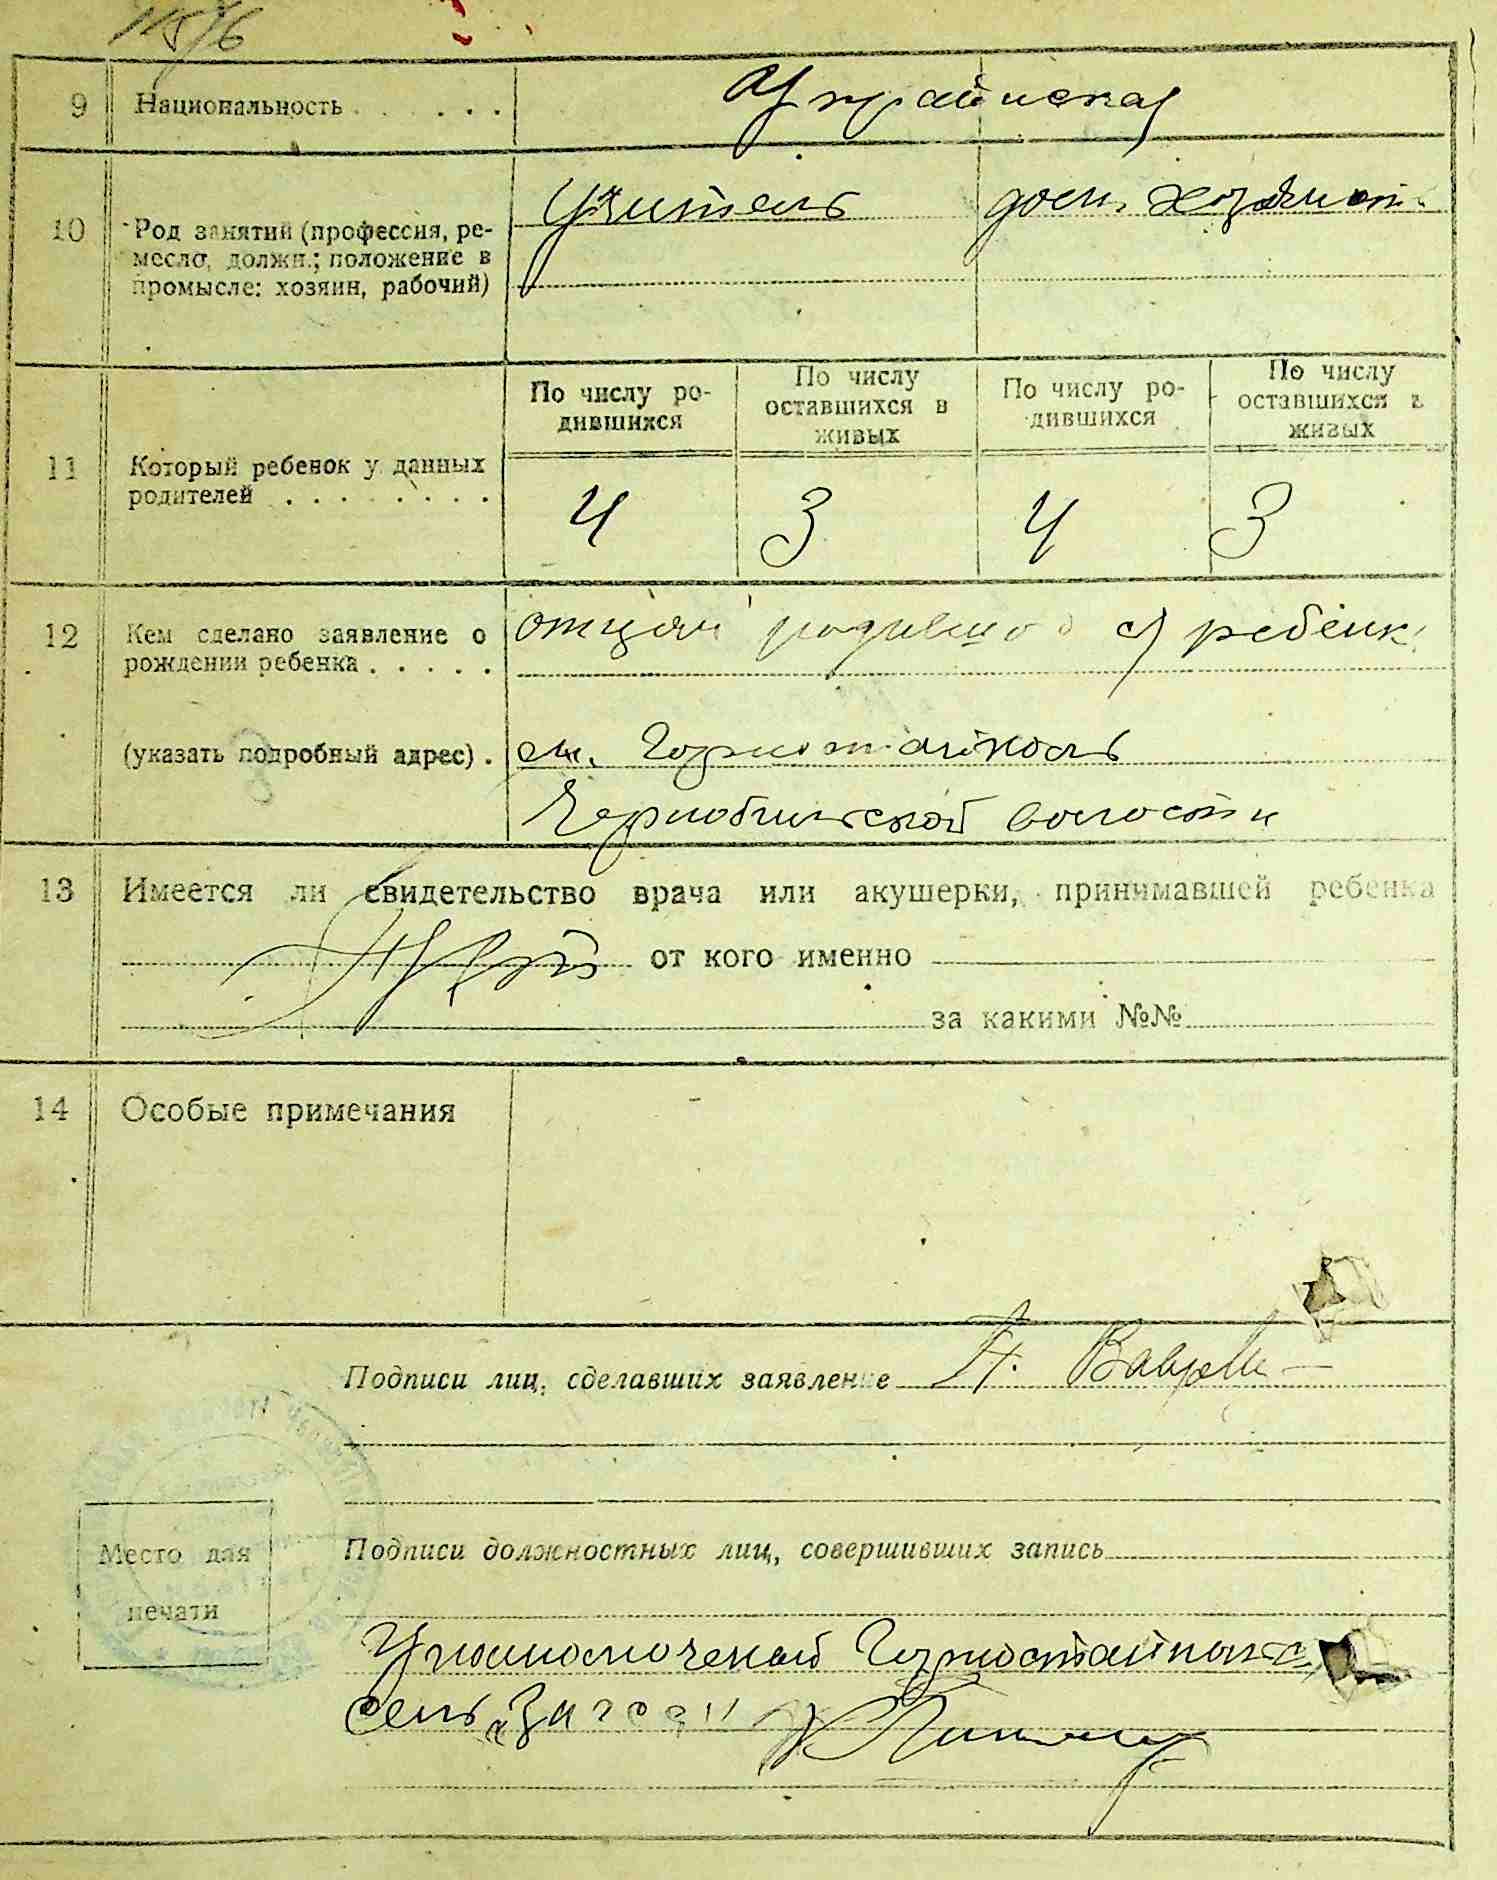 115/6
9 Национальность . . . . . . Украинская
10 Род занятий (профессия, ре-
месло, должн.; положение в
промысле: хозяин, рабочий)
Учитель
11 Который ребенок у данных
родителей . . . . . . . .
По числу ро-
дившихся
По числу
оставшихся в
живых
По числу ро-
дившихся
По числу
оставшихся в
живых
4 3 4 3
12 Кем сделано заявление о
рождении ребенка . . . . .
отцом ребенк
(указать подробный адрес) .
м. Горностайполь
Чернобильской волости
13 Имеется ли свидетельство врача или акушерки, принимавшей ребенка
от кого именно
за какими №№
14 Особые примечания
Подписи лиц, сделавших заявление
Место для
печати
Подписи должностных лиц, совершивших запись
Уполномоченый